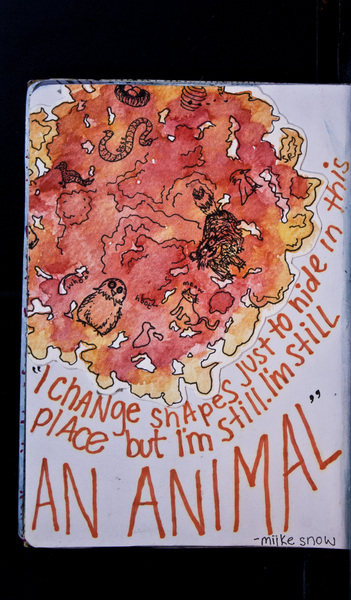 "I change shapes just to hide in this
place but I'm still. I'm still
AN ANIMAL"
-miike snow